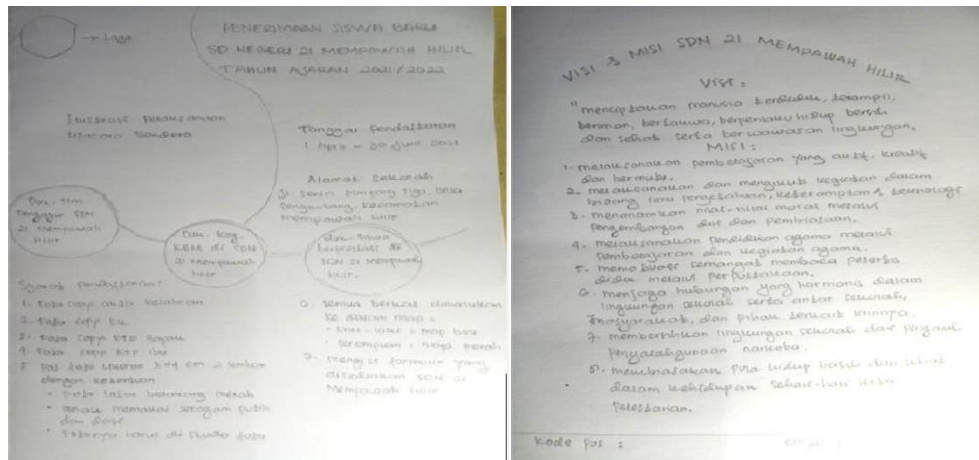 → Logo
PENERIMAAN SISWA BARU
SD NEGERI 21 MEMPAWAH HILIR
TAHUN AJARAN 2021/2022
Ilustrasi pelaksanaan
Upacara Bendera
Tanggal Pendaftaran
1 April - 30 Juni 2021
Alamat Sekolah
Jl. Senin Simpang Tiga, Desa
Kecamatan
Mempawah Hilir
Dok. Tim
SDN
21 Mempawah
Hilir
Dok. Keg.
KBM di SDN
21 Mempawah
Hilir
Dok. Siswa
berprestasi di
SDN 21 Mempawah
Hilir.
Syarat pendaftaran:
1. Foto copy akta kelahiran
2. Foto copy KK
3. Foto copy KTP Bapak
4. Foto copy KTP Ibu
5. Pas foto ukuran 3x4 cm 2 lembar
dengan ketentuan
• Foto latar belakang merah
• memakai seragam putih
dan dasi
• Fotonya harus di studio foto
6. Semua berkas dimasukkan
ke dalam map :
• Laki-laki : map biru
• Perempuan : map merah
7. mengisi formulir yang
disediakan SDN 21
Mempawah Hilir
VISI & MISI SDN 21 MEMPAWAH HILIR
Visi :
"menciptakan manusia terdidik, terampil,
beriman, bertakwa, berperilaku hidup bersih
dan sehat serta berwawasan lingkungan.
MISI :
1. melaksanakan pembelajaran yang aktif, kreatif
dan bermutu.
2. melaksanakan dan mengikuti kegiatan dalam
bidang ilmu pengetahuan, keterampilan & teknologi
3. menanamkan nilai-nilai moral melalui
pengembangan diri dan pembiasaan.
4. melaksanakan pendidikan agama melalui
pembelajaran dan kegiatan agama.
5. memotivasi semangat membaca peserta
didik melalui perpustakaan.
6. menjaga hubungan yang harmonis dalam
lingkungan sekolah serta antar sekolah,
masyarakat, dan pihak terkait lainnya.
7. membersihkan lingkungan sekolah dari
penyalahgunaan narkoba.
8. membiasakan pola hidup bersih dan sehat
dalam kehidupan sehari-hari
pelestarian.
Kode Pos :